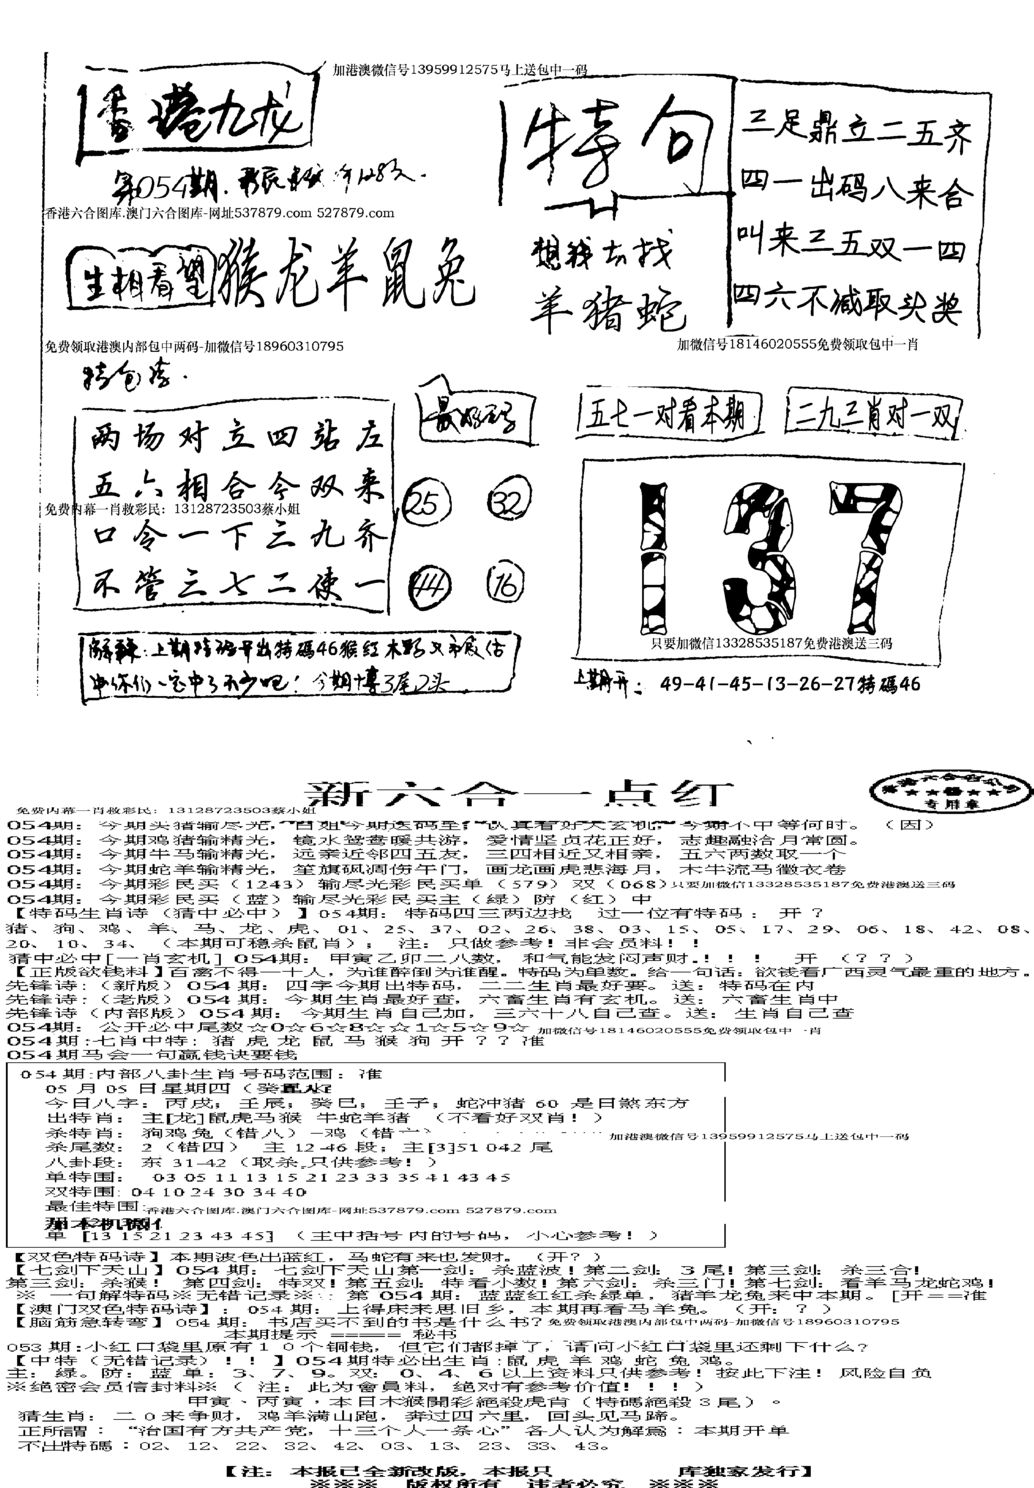 加港澳微信号13959912575马上送包中一码
香港九龙
第054期.
香港六合图库.澳门六合图库-网址537879.com 527879.com
生相看望 猴龙羊鼠兔
特句
想钱去找
羊猪蛇
三足鼎立二五齐
四一出码八来合
叫来三五双一四
四六不减取头奖
免费领取港澳内部包中两码-加微信号18960310795
加微信号18146020555免费领取包中一肖
两场对立四站左
五六相合今双来
免费内幕一肖救彩民：13128723503蔡小姐
口令一下三九齐
不管三七二使一
25 32
44 16
五七一对看本期
二九三肖对一双
137
只要加微信13328535187免费港澳送三码
上期特码开出特碼46猴红木野
今期博3尾2头
上期开：49-41-45-13-26-27特碼46
新六合一点红
专用章
免费内幕一肖救彩民：13128723503蔡小姐
054期：今期头猪输尽光，白姐今期送码至，认真看好天玄机，今期不中等何时。（因）
054期：今期鸡猪输精光，镜水鸳鸯暖共游，爱情坚贞花正好，志趣融洽月常圆。
054期：今期牛马输精光，远亲近邻四五友，三四相近又相亲，五六两数取一个
054期：今期蛇羊输精光，笙旗砜凋伤午门，画龙画虎悲海月，木牛流马徽衣卷
054期：今期彩民买（1243）输尽光彩民买单（579）双（068）只要加微信13328535187免费港澳送三码
054期：今期彩民买（蓝）输尽光彩民买主（绿）防（红）中
【特码生肖诗（猜中必中）】054期：特码四三两边找 过一位有特码：开？
猪、狗、鸡、羊、马、龙、虎、01、25、37、02、26、38、03、15、05、17、29、06、18、42、08、
20、10、34、（本期可稳杀鼠肖）；注：只做参考！非会员料！！
猜中必中[一肖玄机] 054期：甲寅乙卯二八数，和气能发闷声财.！！！ 开（??）
【正版欲钱料】百禽不得一十人，为谁醉倒为谁醒。特码为单数。给一句话：欲钱看广西灵气最重的地方。
先锋诗：（新版）054期：四字今期出特码，二二生肖最好要。送：特码在内
先锋诗：（老版）054期：今期生肖最好查，六畜生肖有玄机。送：六畜生肖中
先锋诗（内部版）054期：今期生肖自己加，三六十八自己查。送：生肖自己查
054期：公开必中尾数☆0☆6☆8☆☆1☆5☆9☆ 加微信号18146020555免费领取包中一肖
054期:七肖中特：猪虎龙鼠马猴狗开??准
054期马会一句赢钱诀要钱
054期:内部八卦生肖号码范围：准
05月05日星期四（癸
今日八字：丙戌；壬辰；癸巳；壬子；蛇冲猪60 是日煞东方
出特肖：主[龙]鼠虎马猴 牛蛇羊猪（不看好双肖！）
杀特肖：狗鸡兔（错八）-鸡（错六）
加港澳微信号13959912575马上送包中一码
杀尾数：2（错四）主12-46段；主[3]51042尾
八卦段：东31-42（取杀.只供参考！）
单特围：03 05 11 13 15 21 23 33 35 41 43 45
双特围：04 10 24 30 34 40
最佳特围：香港六合图库.澳门六合图库-网址537879.com 527879.com
单 [13 15 21 23 43 45]（主中括号内的号码，小心参考！）
【双色特码诗】本期波色出蓝红，马蛇有来也发财。（开？）
【七剑下天山】054期：七剑下天山第一剑：杀蓝波！第二剑：3尾！第三剑：杀三合！
第三剑：杀猴！第四剑：特双！第五剑：特看小数！第六剑：杀三门！第七剑：看羊马龙蛇鸡！
※一句解特码※无错记录※：第054期：蓝蓝红红杀绿单，猪羊龙兔来中本期。[开==准
【澳门双色特码诗】：054期：上得床来思旧乡，本期再看马羊兔。（开：？）
【脑筋急转弯】054期：书店买不到的书是什么书？免费领取港澳内部包中两码-加微信号18960310795
本期提示 ===== 秘书
053期:小红口袋里原有10个铜钱，但它们都掉了，请问小红口袋里还剩下什么？
【中特（无错记录）！！】054期特必出生肖:鼠虎羊鸡蛇兔鸡。
主：绿。防：蓝 单：3、7、9。双：0、4、6以上资料只供参考！按此下注！风险自负
※绝密会员信封料※（注：此为會員料，绝对有参考价值！！！）
甲寅、丙寅，本日木猴開彩絕殺虎肖（特碼絕殺3尾）。
猜生肖：二0来争财，鸡羊满山跑，奔过四六里，回头见马蹄。
正所謂：“治国有方共产党，十三个人一条心”各人认为解爲：本期开单
不出特碼：02、12、22、32、42、03、13、23、33、43。
【注：本报已全新改版，本报只 库独家发行】
※※※ 版权所有 违者必究 ※※※